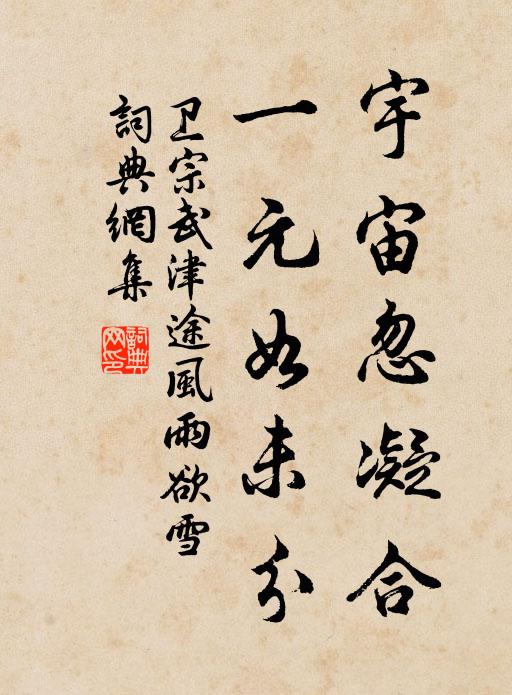 宇宙忽凝合
一元如未分
卫宗武津途風雨欲雪
詞典網集
詞典網印